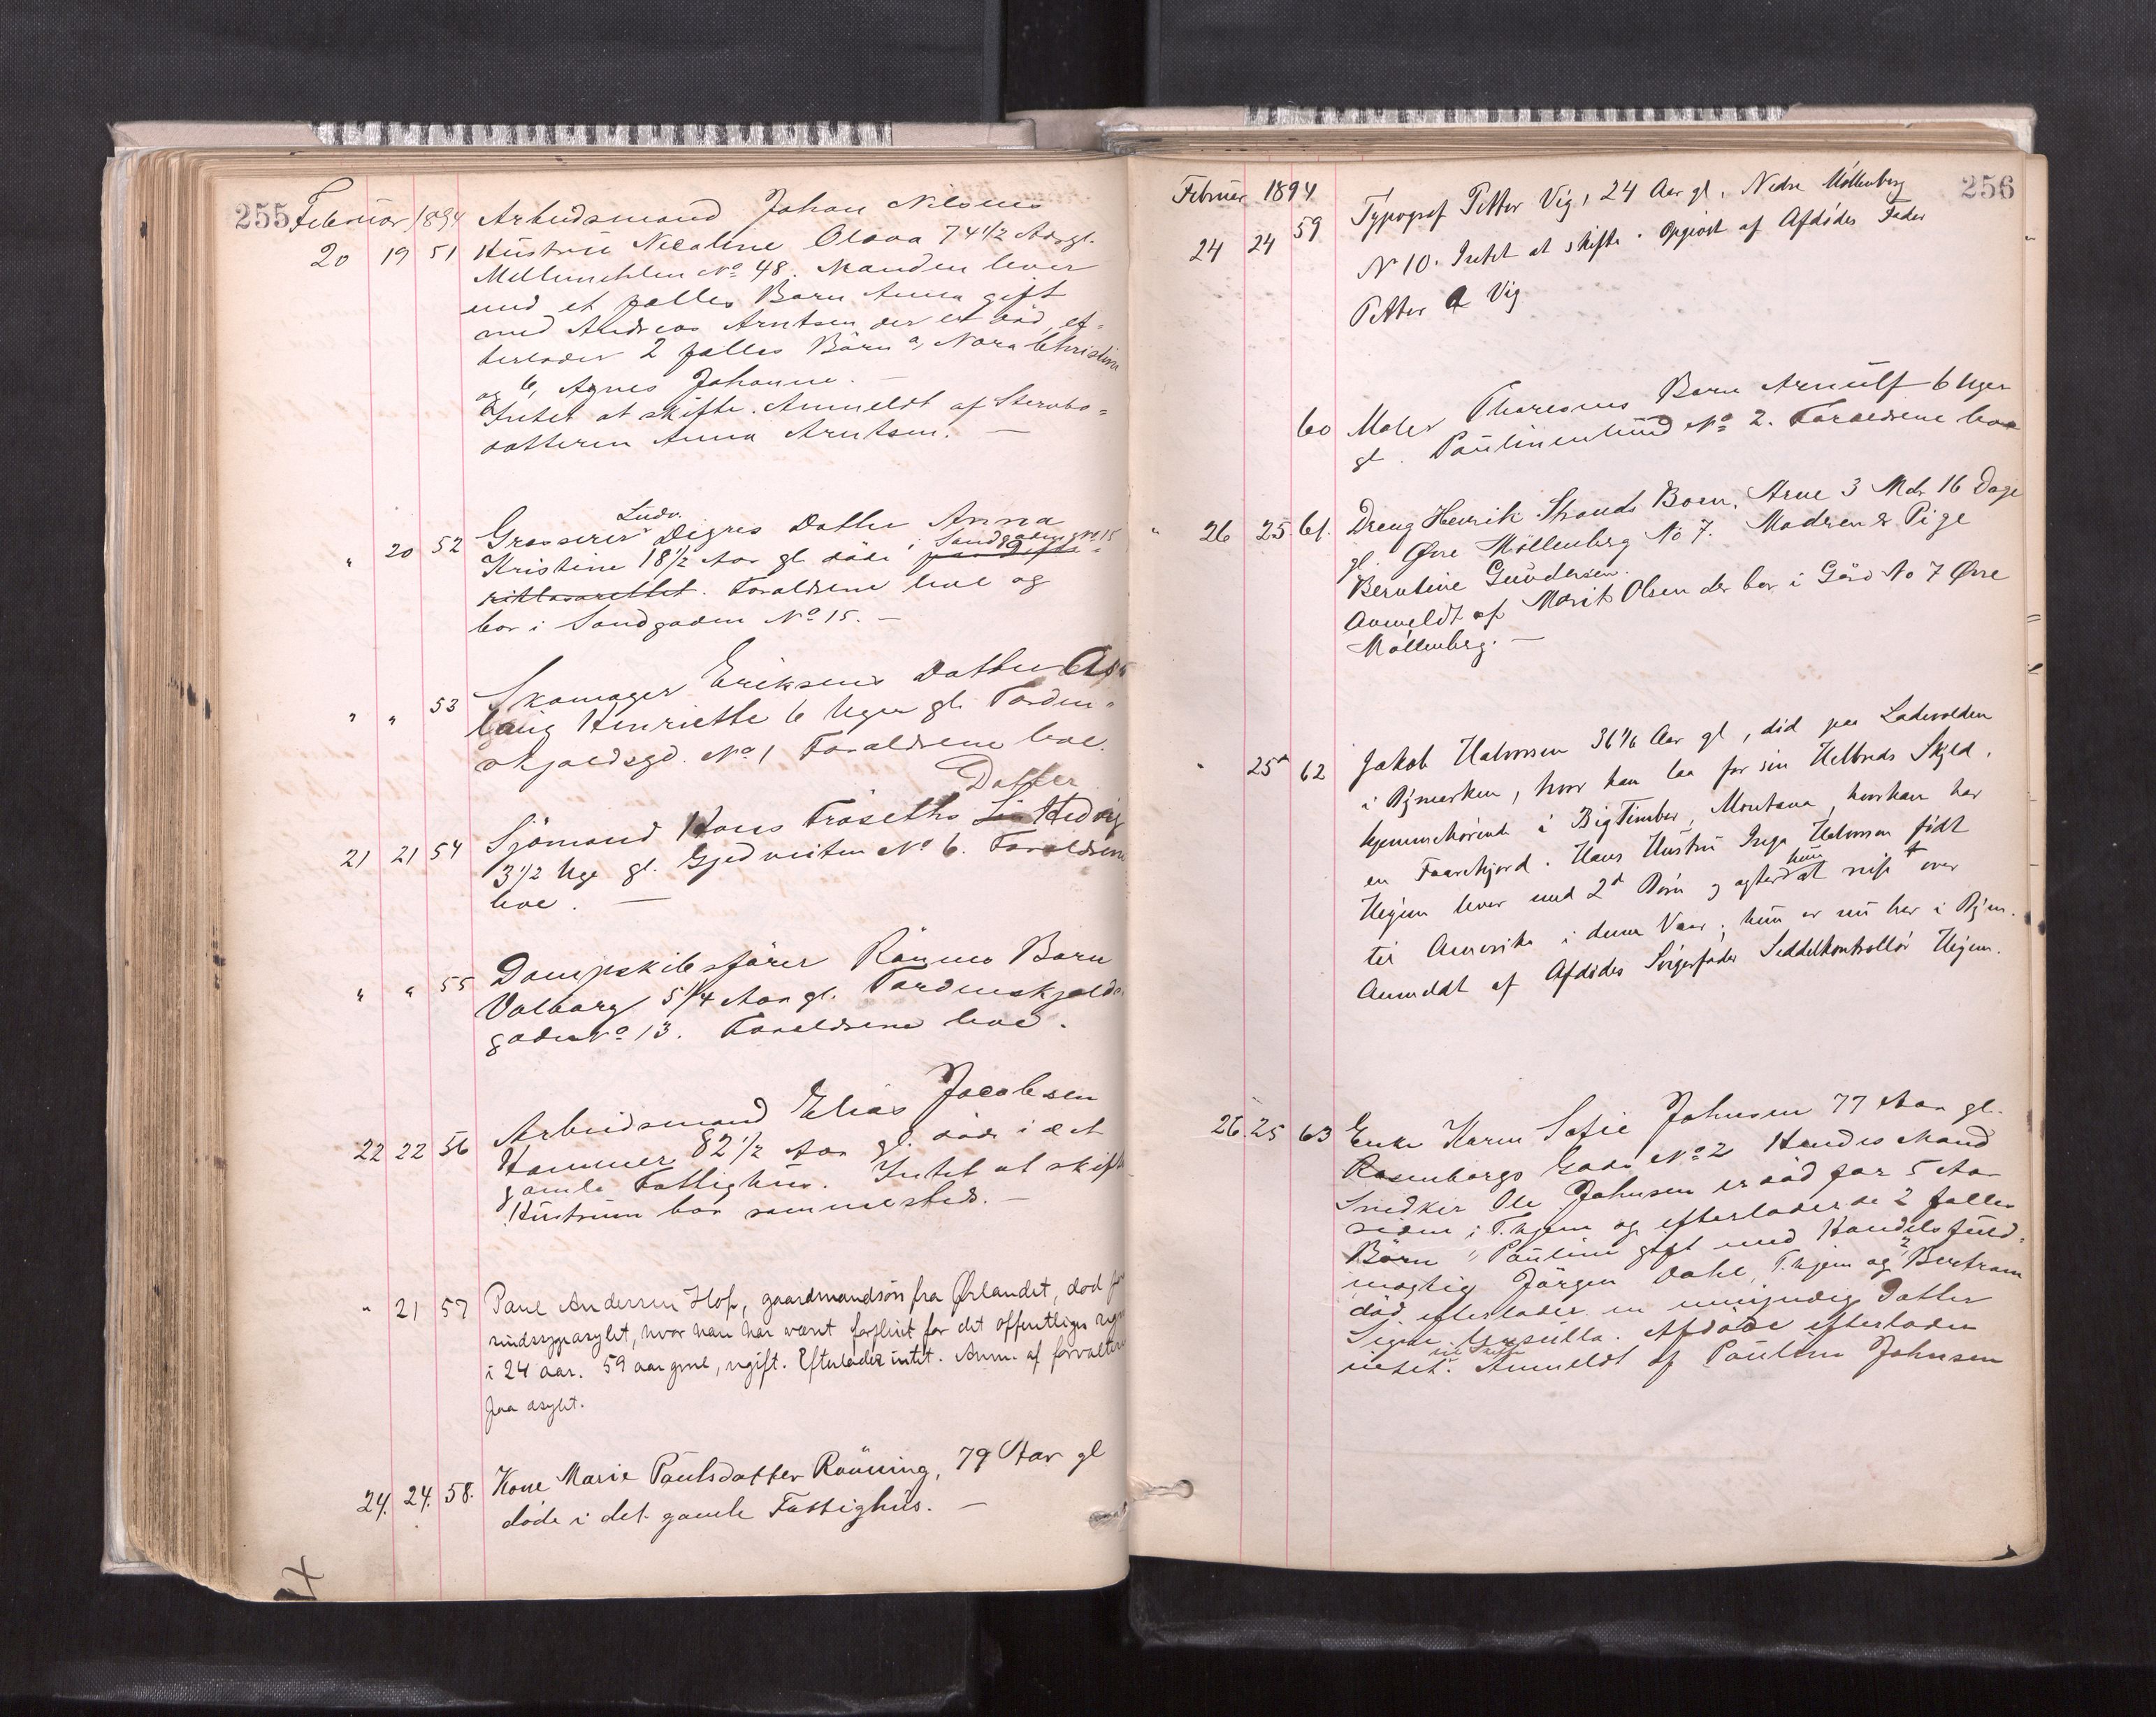 255 Februar 1894 Arbeidsmand Johan Nilsens
20 19 51 Hustru Nicaline Olava 74 1/2 Aar gl.
Mellemihlen No 48. Manden lever
med et fælles Barn Anna gift
med Andreas Arntsen der er död, ef-
terlader 2 fælles Börn a, Nora Christine
og b, Agnes Johanne. —
Intet at skifte. Anmeldt af Stervbo-
datteren Anna Arntsen. —
" 20 52 Grosserer Ludv. Digres Datter Anna
Kristine 18 1/2 Aar gl. döde i Sandgaden No 15
. Foraldrene leve og
bor i Sandgaden No 15. —
" " 53 Skomager Eriksens Datter As
laug Henriette 6 Uger gl. Torden-
skjoldsgd. No 1 Foraldrene leve.
Datter
21 21 54 Sjömand Hans Fröseths Hedvig
3 1/2 Uge gl. Gjedveiten No 6. Foraldrene
leve. —
" " 55 Dampskibsförer Barn
Valborg 5 1/4 Aar gl. Tordenskjolds
gaden No 13. Foraldrene leve.
22 22 56 Arbeidsmand Elias Jacobsen
Hammer 82 1/2 Aar gl. döde i det
gamle Fattighus. Intet at skifte
Hustruen bor sammesteds. —
" 21 57 Paul Andersen Hof, gaardmandsön fra Ørlandet, död paa
sindssygeasylet, hvor han har været forpleiet for det offentliges regn
i 24 aar. 59 aar gml, ugift. Efterlader intet. Anm. af forvalteren
paa asylet.
24. 24. 58. Kone Marie Paulsdatter Rönning, 79 Aar gl
döde i det gamle Fattighus. —
Februar 1894 256
24 24 59 Typograf Petter Vig, 24 Aar gl, Nedre Möllenberg
No 10. Intet at skifte. Opgivet af Afdödes Fader
Petter A Vig
60 Maler Thoresens Barn Arnulf 6 Uger
gl. Paulinenlund No 2. Foraldrene leve
" 26 25. 61. Dreng Henrik Strands Barn, Arne 3 Mdr 16 Dage
gl. Øvre Möllenberg No 7. Modren er Pige
Berntine Gundersen.
Anmeldt af Marit Olsen der bor i Gård No 7 Øvre
Möllenberg. —
" 25 62 Jakob Halvorsen 36 1/6 Aar gl, död paa Ladevolden
i Bymarken, hvor han laa for sin Helbreds Skyld,
hjemmehörende i Big Timber, Montana, hvor han har
en Faarehjord. Hans Hustru Inga Halvorsen födt
Uejem lever med 2 Börn og agter hun at reise over
til Amerika i denne Vaar; hun er nu her i Byen.
Anmeldt af Afdödes Svigerfader Seddelkontrollör Uejem.
26. 25 63 Enke Karen Sofie Johnsen 77 Aar gl.
Rosenborgs Gade No 2 Hendes Mand
Snedker Ole Johnsen er död for 5 Aar
siden i T.hjem og efterlader de 2 fælles
Börn 1, Pauline gift med Handelsfuld-
mægtig Jörgen Dahl, T.hjem og 2, Bertram
död efterlader en umyndig Datter
Signe Ursulla. Afdöde efterlader
intet til Skifte. Anmeldt af Pauline Johnsen